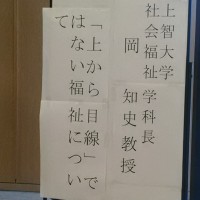 上智大学
社会福祉学科長
岡 知史教授
「上から目線」で
はない福祉につい
て